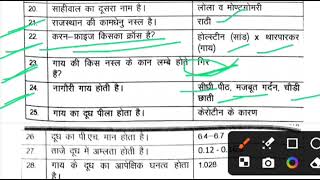 20. साहीवाल का दूसरा नाम है। लोला व मोण्टगोमरी
21. राजस्थान की कामधेनु नस्ल है। राठी
22. करन-फ्राइज किसका क्रॉस है? होल्स्टीन (सांड) x थारपारकर (गाय)
23. गाय की किस नस्ल के कान लम्बे होते है? गिर
24. नागौरी गाय होती है। सीधी पीठ, मजबूत गर्दन, चौड़ी छाती
25. गाय का दूध पीला होता है। कैरोटीन के कारण
26. दूध का पी.एच. मान होता है। 6.4-6.7
27. ताजे दूध में अम्लता होती है। 0.12 -
28. गाय के दूध का आपेक्षिक घनत्व होता है। 1.028